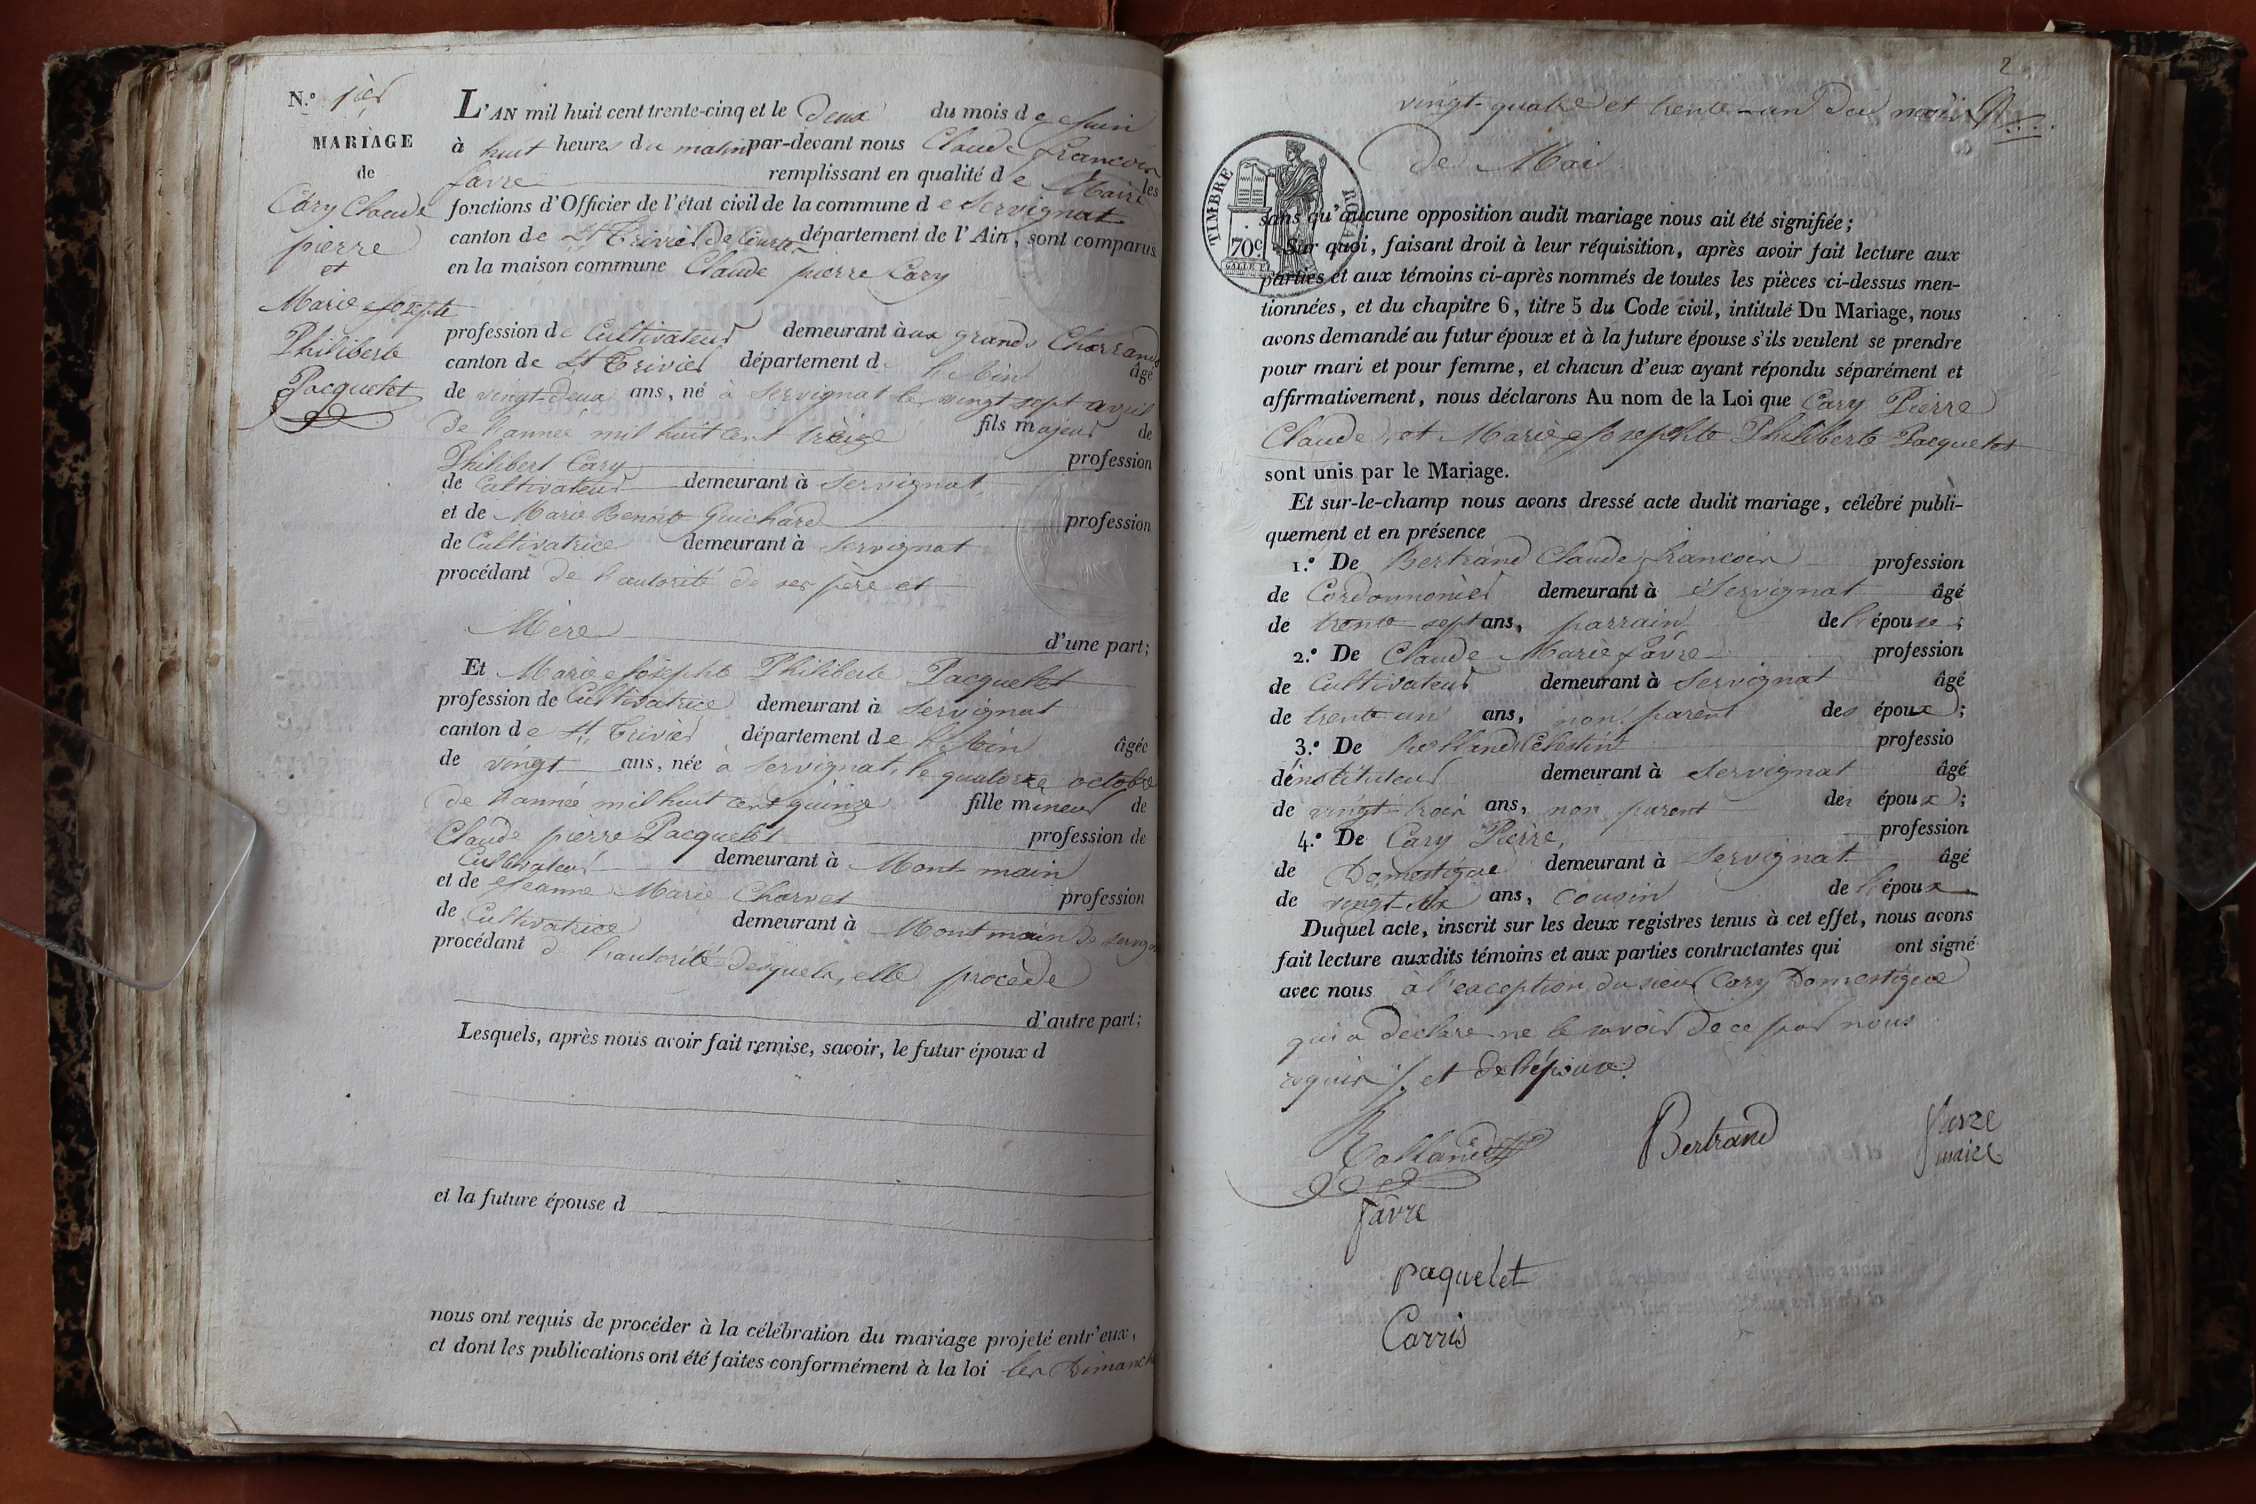 N.º 1er
MARIAGE
de
Cary Claude
pierre
et
Marie Josephte
Philiberte
Pacquelet
L'AN mil huit cent trente-cinq et le deux du mois de Juin
à huit heures du matin par-devant nous Claude francois
favre remplissant en qualité de Maire les
fonctions d'Officier de l'état civil de la commune de Servignat
canton de St Trivier de Courtes département de l'Ain, sont comparus
en la maison commune Claude pierre Cary
profession de Cultivateur demeurant à aux grands Charrands
canton de St Trivier département de l'Ain âgé
de vingt-deux ans, né à Servignat le vingt sept avril
de l'année mil huit cent treize fils majeur de
Philibert Cary profession
de Cultivateur demeurant à Servignat
et de Marie Benoite Guichard profession
de Cultivatrice demeurant à Servignat
procédant de l'autorité de ses père et
Mère d'une part;
Et Marie Josephte Philiberte Pacquelet
profession de Cultivatrice demeurant à Servignat
canton de St Trivier département de l'Ain âgée
de vingt ans, née à Servignat, le quatorze octobre
de l'année mil huit cent quinze fille mineur de
Claude pierre Pacquelet profession de
Cultivateur demeurant à Mont main
et de Jeanne Marie Charvet profession
de Cultivatrice demeurant à Montmain de Servignat
procédant de l'autorité desquels, elle procède
d'autre part;
Lesquels, après nous avoir fait remise, savoir, le futur époux d
et la future épouse d
nous ont requis de procéder à la célébration du mariage projeté entr'eux,
et dont les publications ont été faites conformément à la loi les Dimanche
2
vingt-quatre et trente-un du mois
de Mai
TIMBRE ROYAL
70c.
sans qu'aucune opposition audit mariage nous ait été signifiée;
Sur quoi, faisant droit à leur réquisition, après avoir fait lecture aux
parties et aux témoins ci-après nommés de toutes les pièces ci-dessus men-
tionnées, et du chapitre 6, titre 5 du Code civil, intitulé Du Mariage, nous
avons demandé au futur époux et à la future épouse s'ils veulent se prendre
pour mari et pour femme, et chacun d'eux ayant répondu séparément et
affirmativement, nous déclarons Au nom de la Loi que Cary Pierre
Claude et Marie Josephte Philiberte Pacquelet
sont unis par le Mariage.
Et sur-le-champ nous avons dressé acte dudit mariage, célébré publi-
quement et en présence
1.º De Bertrand Claude francois profession
de Cordonnonier demeurant à Servignat âgé
de trente sept ans, parrain de l'épouse;
2.º De Claude Marie favre profession
de Cultivateur demeurant à Servignat âgé
de trente un ans, non parent des époux;
3.º De Rolland Célestin professio
d'instituteur demeurant à Servignat âgé
de vingt trois ans, non parent des époux;
4.º De Cary Pierre, profession
de Domestique demeurant à Servignat âgé
de vingt six ans, cousin de l'époux
Duquel acte, inscrit sur les deux registres tenus à cet effet, nous avons
fait lecture auxdits témoins et aux parties contractantes qui ont signé
avec nous à l'exception du sieur Cary Domestique
qui a déclaré ne le savoir de ce par nous
requis ./. et de l'épouse.
Rolland Bertrand
maire
favre
paquelet
Carris